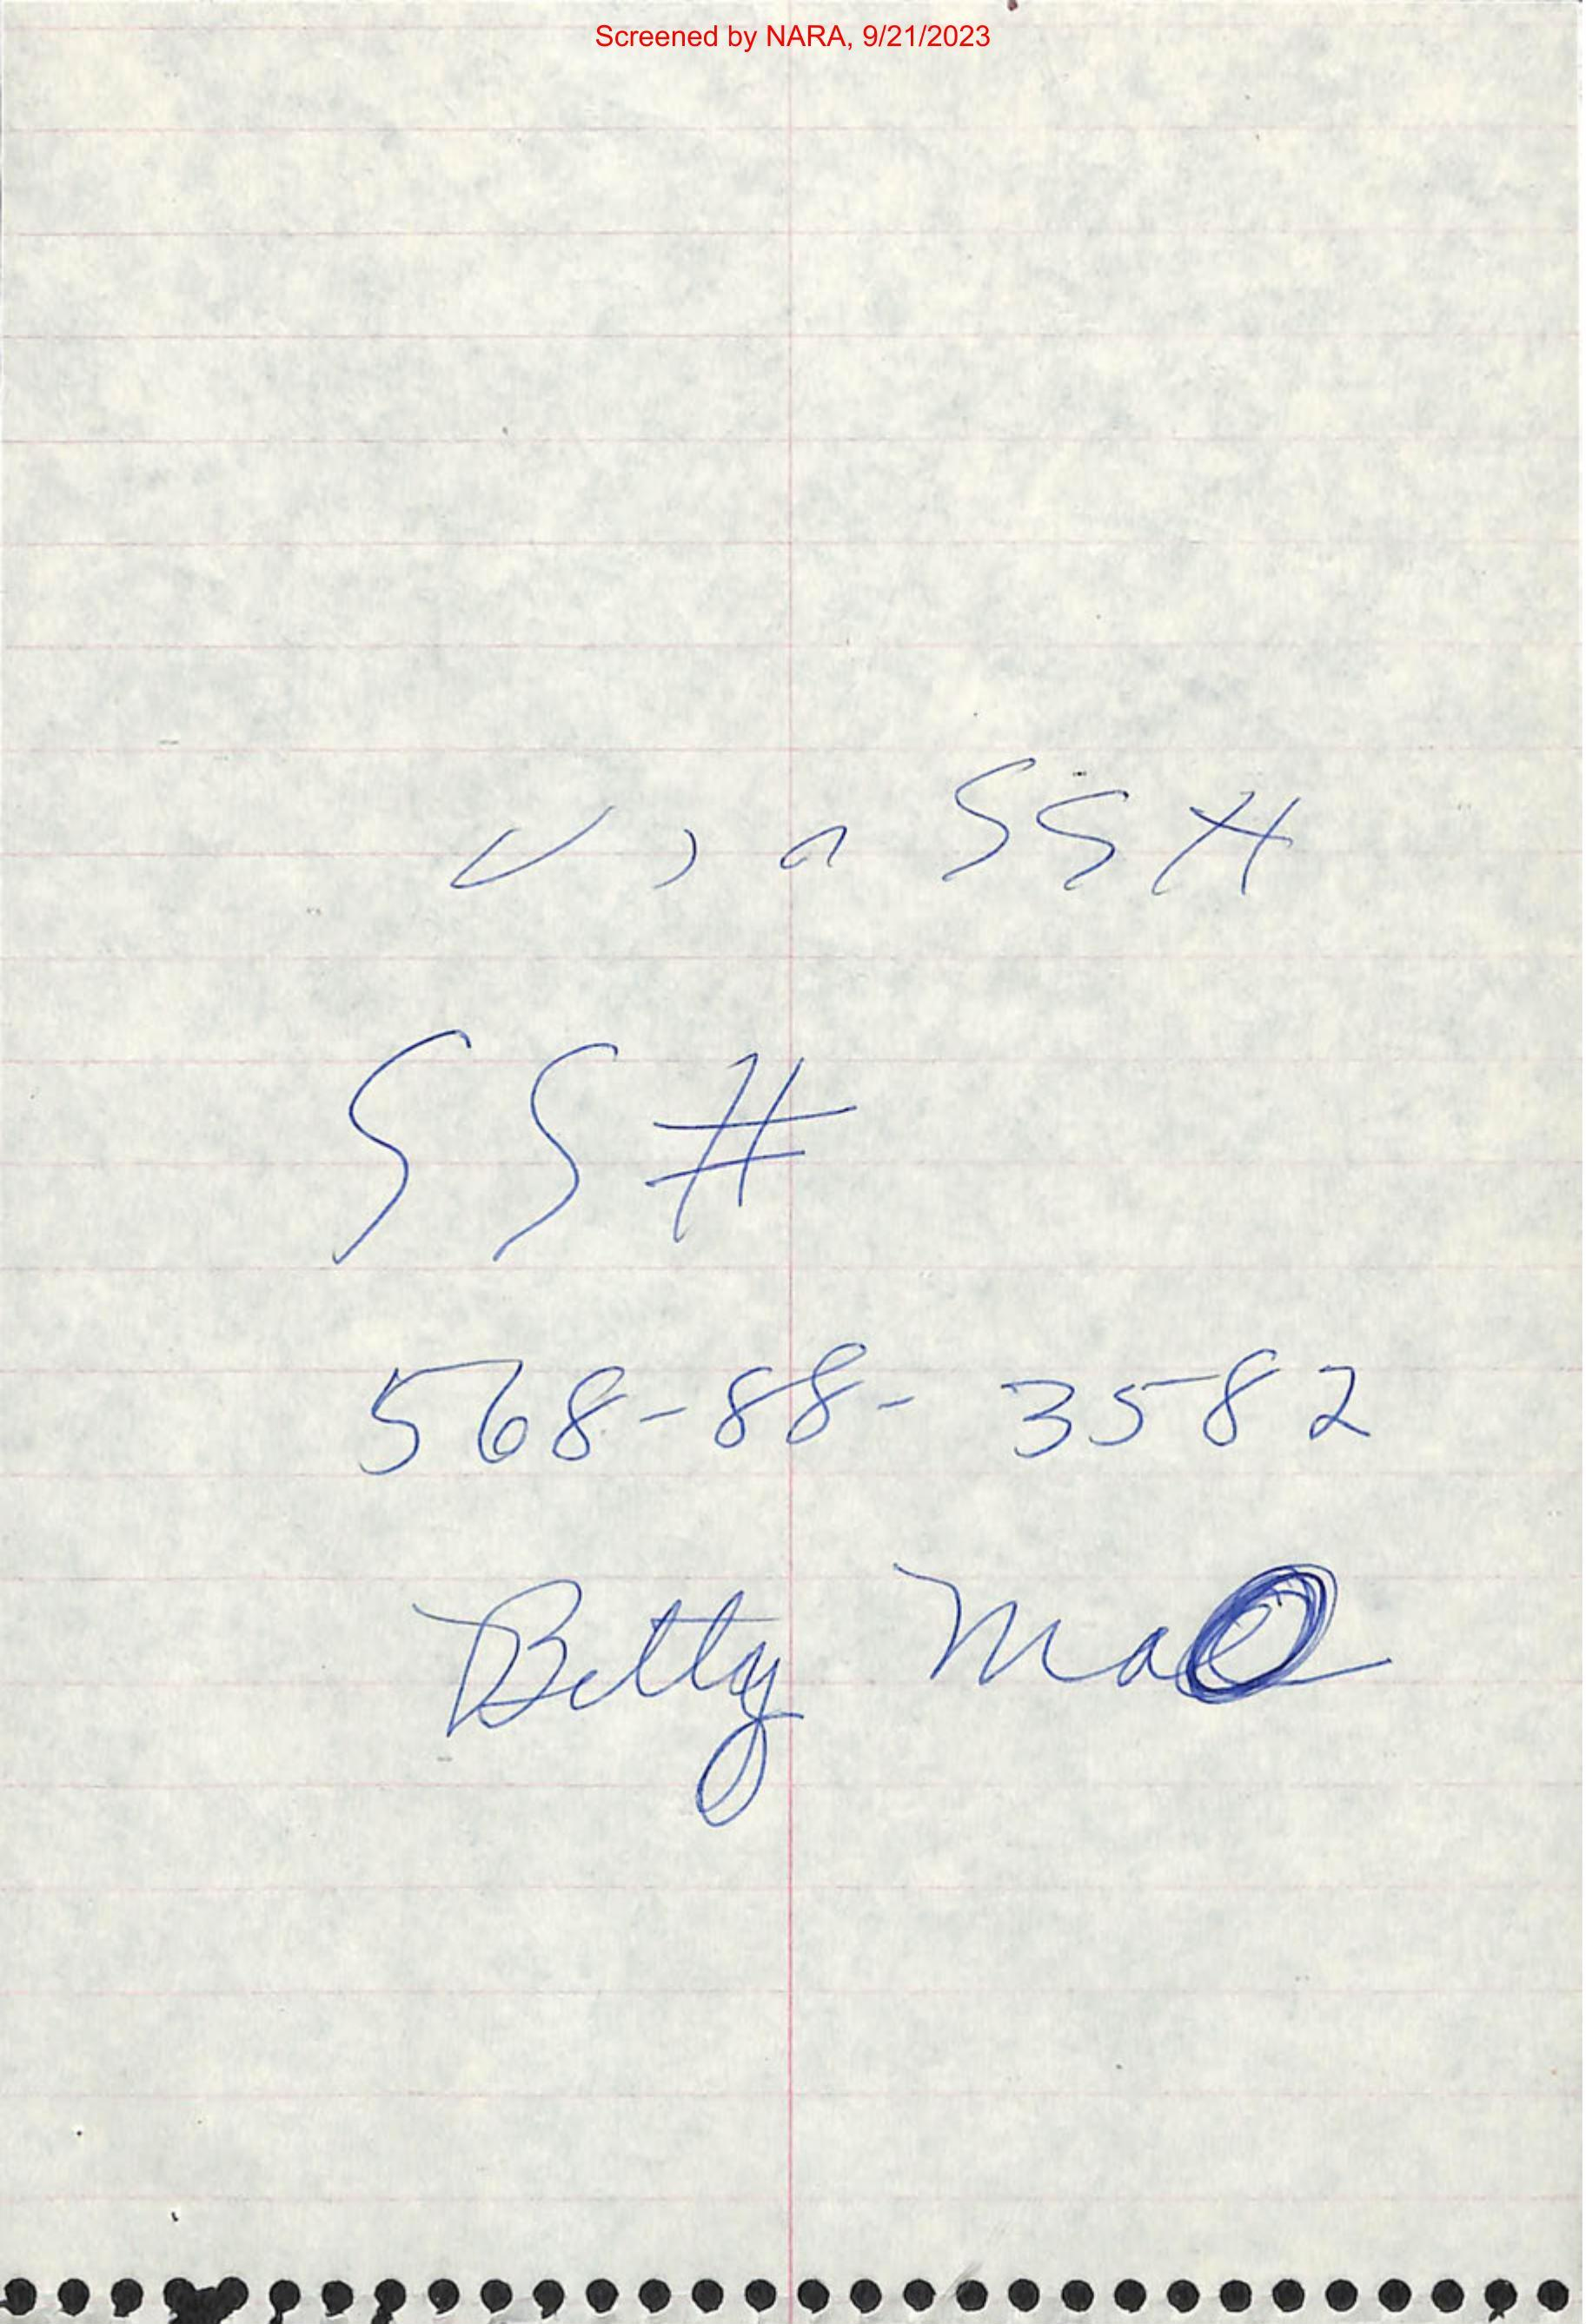 Screened by NARA, 9/21/2023
SS #
SS #
568-88-3582
Betty